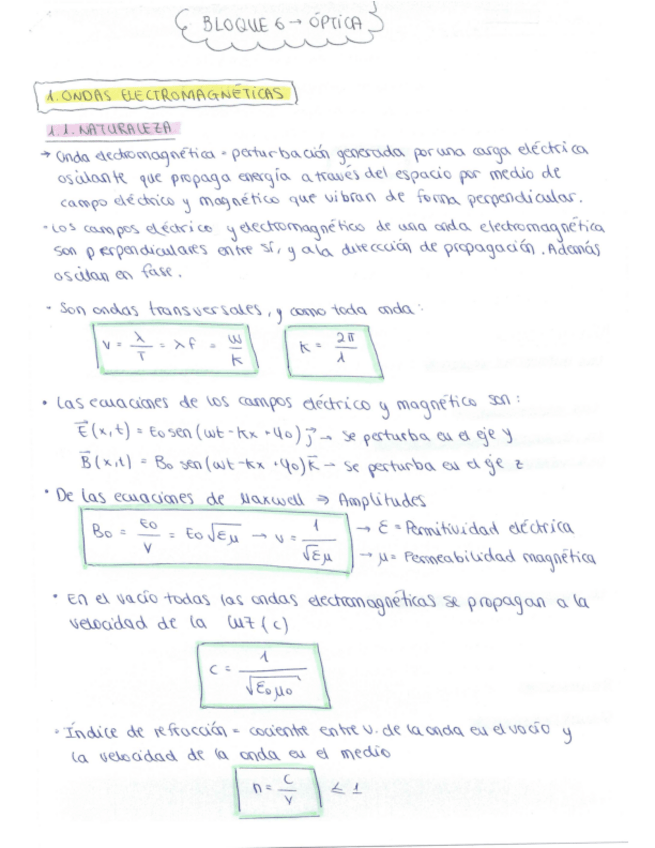 BLOQUE 6 → ÓPTICA
1. ONDAS ELECTROMAGNÉTICAS
1.1. NATURALEZA
→ Onda electromagnética = perturbación generada por una carga eléctrica
oscilante que propaga energía a través del espacio por medio de
campo eléctrico y magnético que vibran de forma perpendicular.
· Los campos eléctrico y electromagnético de una onda electromagnética
son perpendiculares entre sí, y a la dirección de propagación. Además
oscilan en fase.
· Son ondas transversales, y como toda onda:
v = λ/T = λf = ω/k   k = 2π/λ
· Las ecuaciones de los campos eléctrico y magnético son:
E⃗(x,t) = E₀ sen(ωt - kx + φ₀) j⃗ → se perturba en el eje y
B⃗(x,t) = B₀ sen(ωt - kx + φ₀) k⃗ → se perturba en el eje z
· De las ecuaciones de Maxwell ⇒ Amplitudes
B₀ = E₀/v = E₀√εμ → v = 1/√εμ → ε = Permitividad eléctrica
→ μ = Permeabilidad magnética
· En el vacío todas las ondas electromagnéticas se propagan a la
velocidad de la luz (c)
c = 1/√ε₀μ₀
· Índice de refracción = cociente entre v. de la onda en el vacío y
la velocidad de la onda en el medio
n = c/v ≤ 1